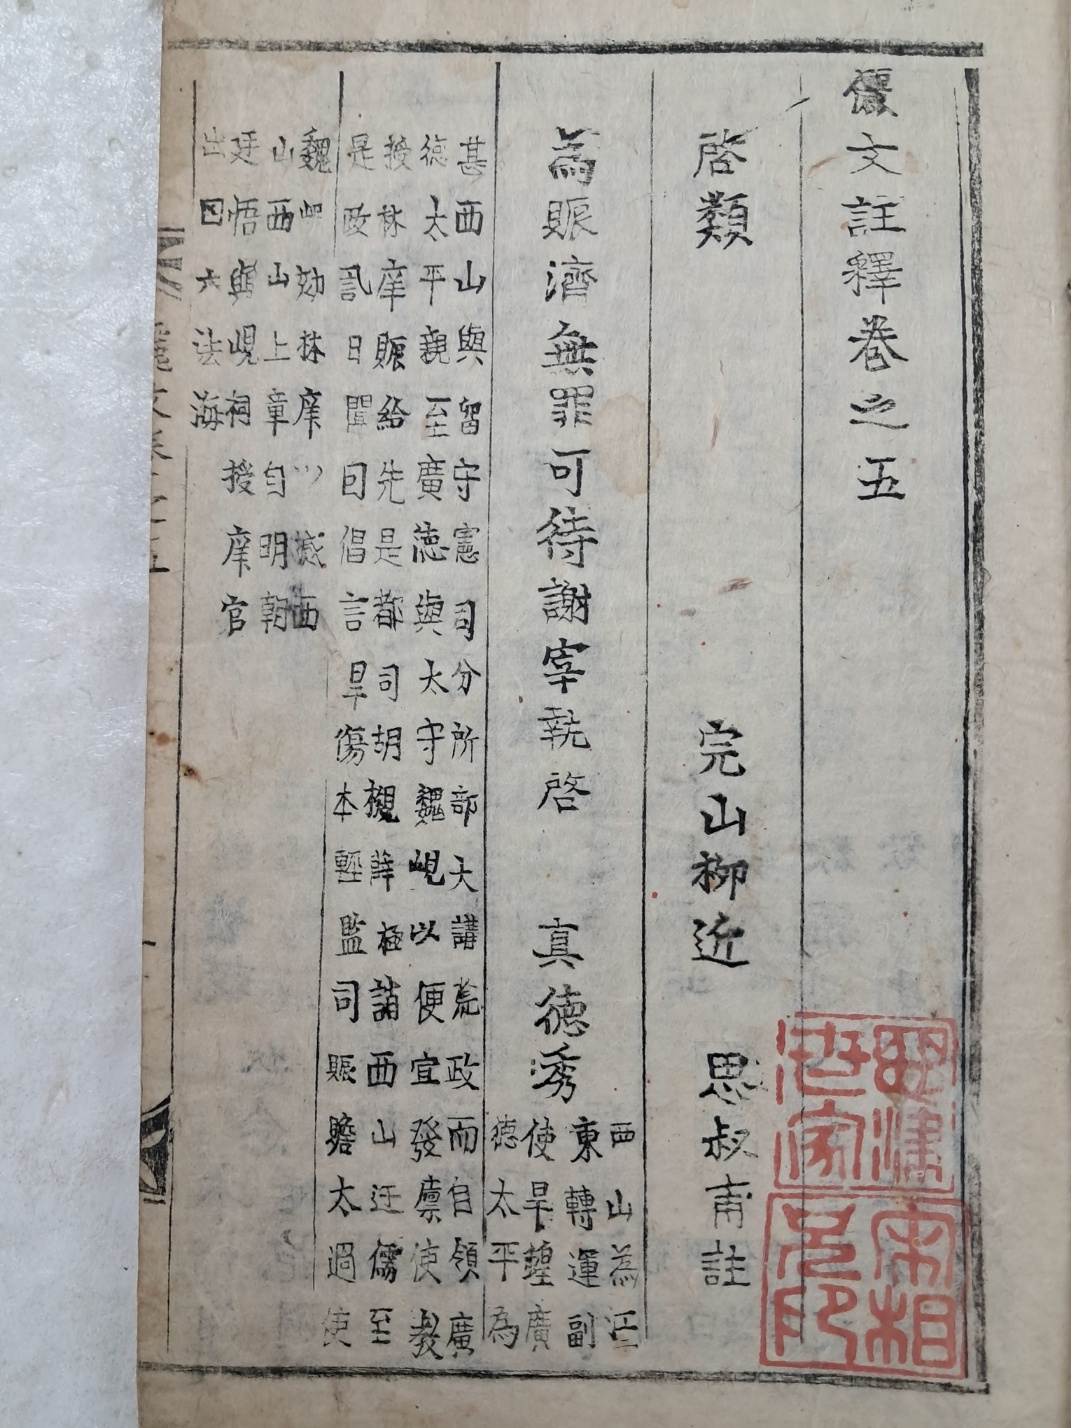 儷文註釋卷之五
啓類 完山柳近 思叔甫註
為賑濟無罪可待謝宰執啓 真德秀
西山為江
東轉運副
使旱蝗廣
德太平為
甚西山與留守憲司分所部大講荒政而自領廣
德太平親至廣德與太守魏峴以便宜發廪使教
授林庠賑給先是都司胡槻薛極誚西山迂儒至
是政訊日聞囙倡言旱傷本輕監司賑贍太過使
魏峴劾林庠 撼西
山西山上章自明朝
廷悟與峴祠授庠官
出四六法海